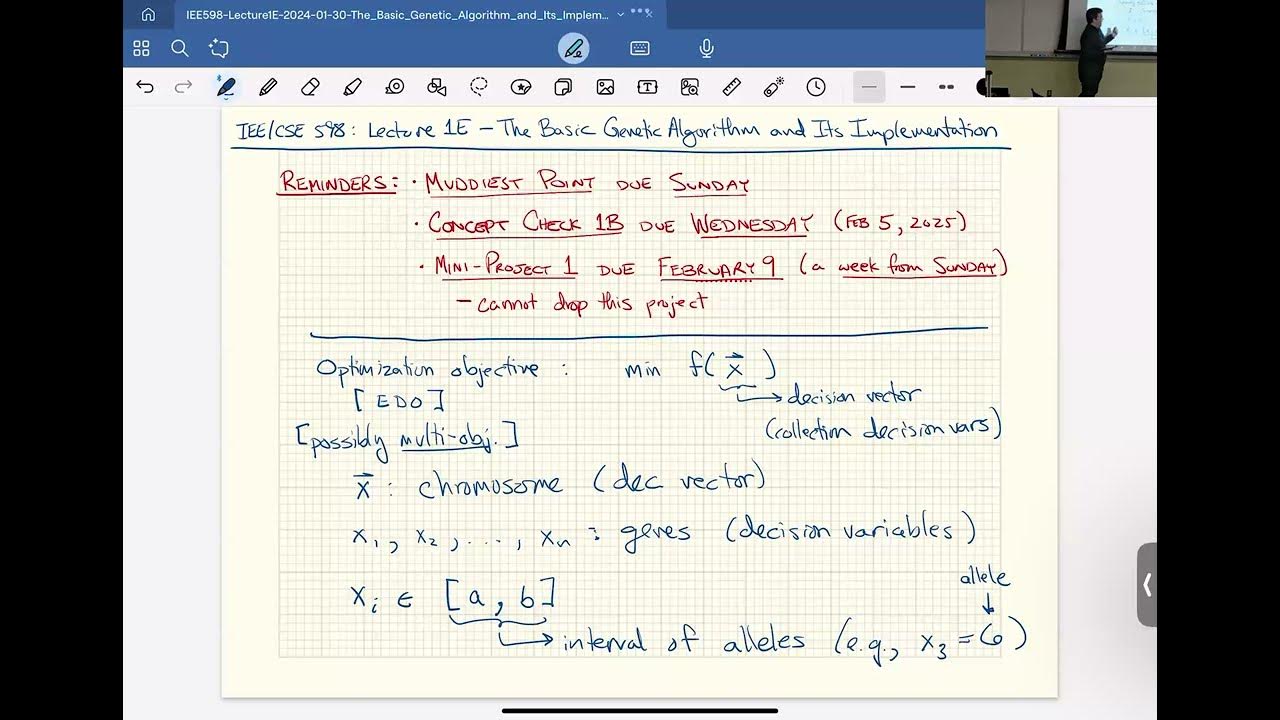 IEE598-Lecture1E-2024-01-30-The_Basic_Genetic_Algorithm_and_Its_Implem...
IEE/CSE 598: Lecture 1E – The Basic Genetic Algorithm and Its Implementation
REMINDERS: · MUDDIEST POINT DUE SUNDAY
· CONCEPT CHECK 1B DUE WEDNESDAY (FEB 5, 2025)
· MINI-PROJECT 1 DUE FEBRUARY 9 (a week from SUNDAY)
– cannot drop this project
Optimization objective : min f(x⃗)
[EDO] → decision vector
[possibly multi-obj.] (collection decision vars)
x⃗ : chromosome (dec vector)
x₁, x₂, ..., xₙ : genes (decision variables)
allele
xᵢ ∈ [a, b]
→ interval of alleles (e.g., x₃ = 6)